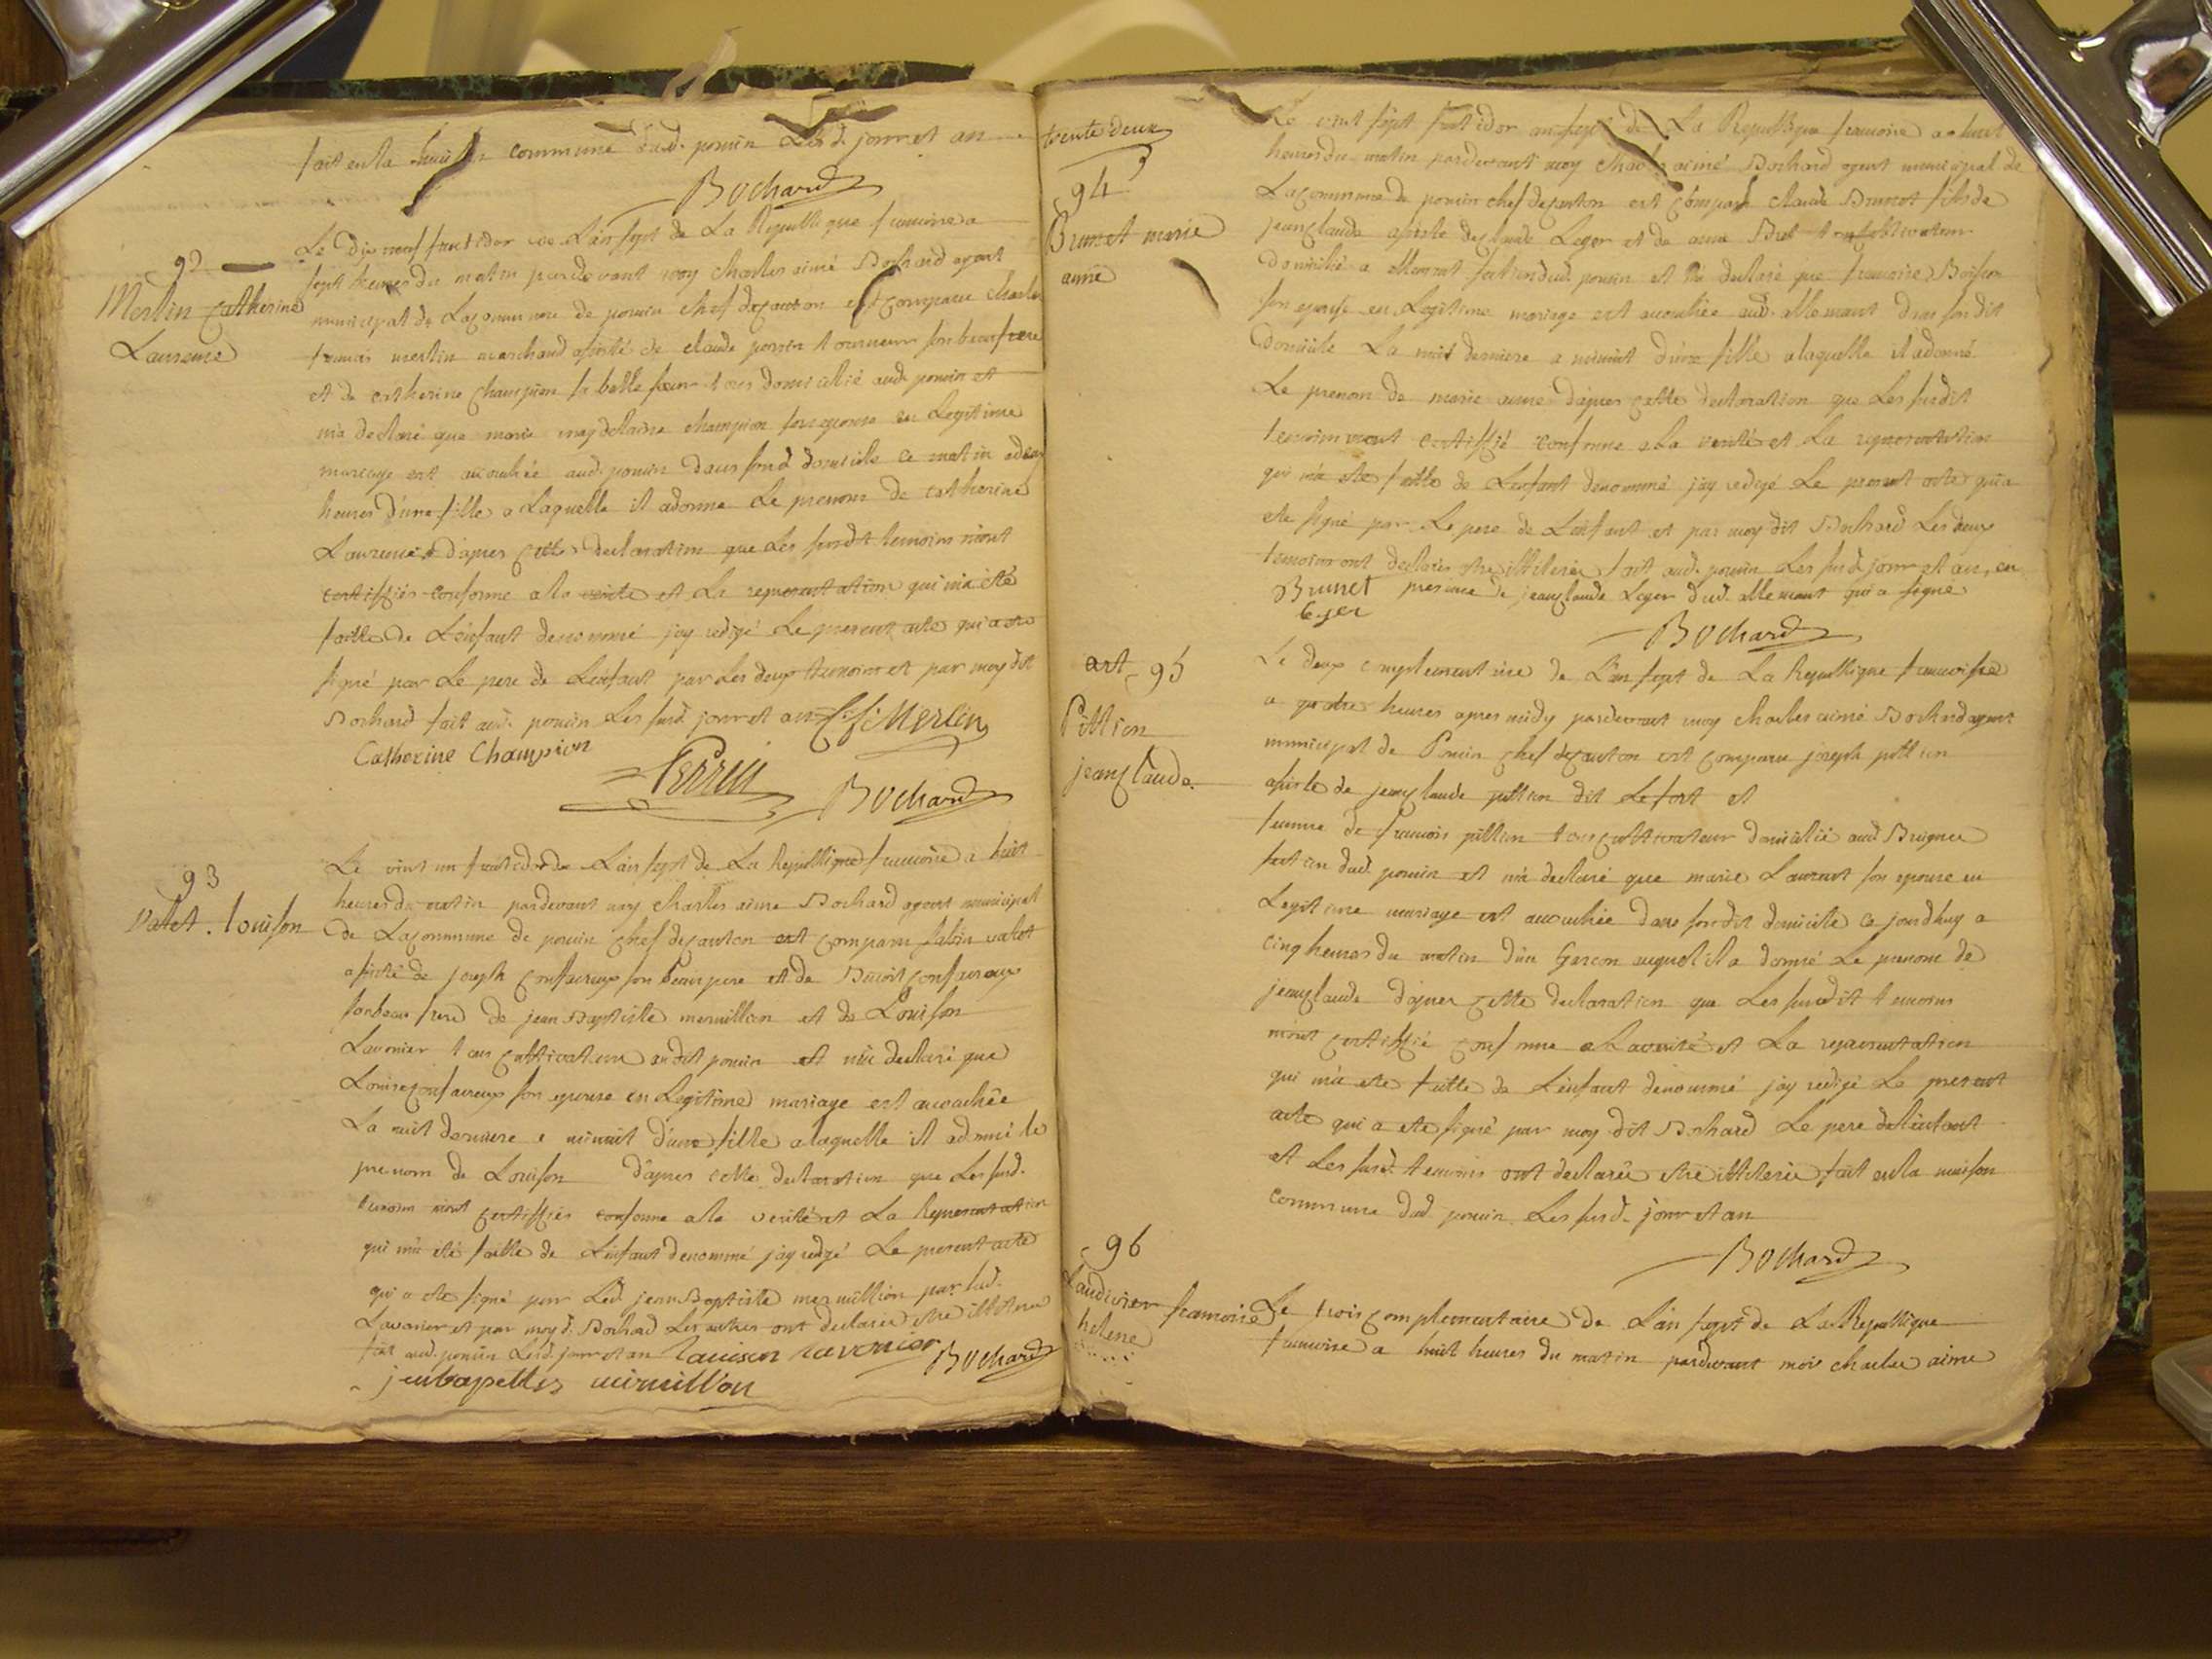 fait en la maison commune dud. poncin Lesd. jour et an
Bochard
92
Merlin Catherine
Laurence
Le dix neuf fructidor de L'an sept de La Republique francoise a
sept heures du matin pardevant moy charles aimé Bochard agent
municipal de La commune de poncin chef de canton est comparu charles
francois merlin marchand assisté de claude perrin tourneur son beaufrere
et de catherine champion sa belle soeur tous domicilié aud. poncin et
m'a declaré que marie magdelaine champion son epouse en Legitime
mariage est accouchée aud. poncin dans sond. domicille ce matin a deux
heures d'une fille a Laquelle il a donné Le prenom de catherine
Laurence d'apres cette declaration que Les susdt temoins m'ont
certiffiés conforme a la verité et La representation qui m'a été
faitte de L'enfant denommé jay redigé Le present acte qui a été
signé par Le pere de L'enfant par Les deux temoins et par moy dit
Bochard fait aud. poncin Les susd. jour et an C. f. Merlin
Catherine Champion
Perrin Bochard
93
vallet. Louison
Le vint un fructidor de L'an sept de La Republique francoise a huit
heures du matin pardevant moy charles aime Bochard agent municipal
de La commune de poncin chef de canton est comparu sabin valet
assisté de joseph confavreux son beau pere et de Benoit confavreux
son beau frere de jean Baptiste mermillon et de Louison
Lavonier tous cultivateurs audit poncin et m'a declaré que
Louise confavreux son epouse en Legitime mariage est accouchée
La nuit derniere a minuit d'une fille a laquelle il a donné le
prenom de Louison d'apres cette declaration que Les susd.
temoins m'ont certiffiés conforme a la verité et La Representation
qui m'a été faitte de L'enfant denommé j'ay redigé Le present acte
qui a été signé par Led. jean Baptiste mermillion par lad.
Lavonier et par moyd. Bochard Les autres ont declarés etre illiteré
fait aud. poncin Lesd. jour et an Louison Lavonier Bochard
jeanbapttes mirmillon
trente deux
94
Brunet marie
anne
Le vint sept fructidor an sept de La Republique francoise a huit
heures du matin pardevant moy charles aimé Bochard agent municipal de
La commune de poncin chef de canton est comparu claude Brunet fils de
jean claude assisté de claude Leger et de anne tous cultivateurs
domicilié a allemant section dud. poncin et m'a declaré que francoise
son epouse en Legitime mariage est accouchée aud. allemant dans son dit
domicile La nuit derniere a minuit d'une fille a laquelle il a donné
Le prenom de marie anne d'apres cette declaration que Les susdit
temoins m'ont certiffié conforme a La verité et La representation
qui m'a eté faitte de L'enfant denommé jay redigé Le present acte qui a
eté signé par Le pere de L'enfant et par moy dit Bochard Les deux
temoins ont declarés etre illiterés fait aud. poncin Les susd. jour et an, en
Brunet presence de jean claude Leger dud. allemant qui a signé
Leger
Bochard
art. 95
Pittion
jean claude.
Le deux complementaire de L'an sept de La Republique francoise
a quatre heures apres midy pardevant moy charles aimé Bochard agent
municipal de Poncin chef de canton est comparu joseph pittion
assisté de jean claude pittion dit Le fort et
femme de francois pittion tous cultivateur domicilié aud
section dud. poncin et m'a declaré que marie Laurent son epouse en
Legitime mariage est accouchée dans son dit domicile ce jourdhuy a
cinq heures du matin d'un Garcon auquel il a donné Le prenom de
jean claude d'apres cette declaration que Les susdit temoins
m'ont certiffié conforme a La verité et La representation
qui m'a eté faitte de L'enfant denommé jay redigé Le present
acte qui a eté signé par moy dit Bochard Le pere de l'enfant
et Les susd. temoins ont declarés etre illiterés fait en la maison
commune dud poncin Les susd. jour et an
Bochard
96
francoise
helene
Le trois complementaire de L'an sept de La Republique
francoise a huit heures du matin pardevant moi charles aimé